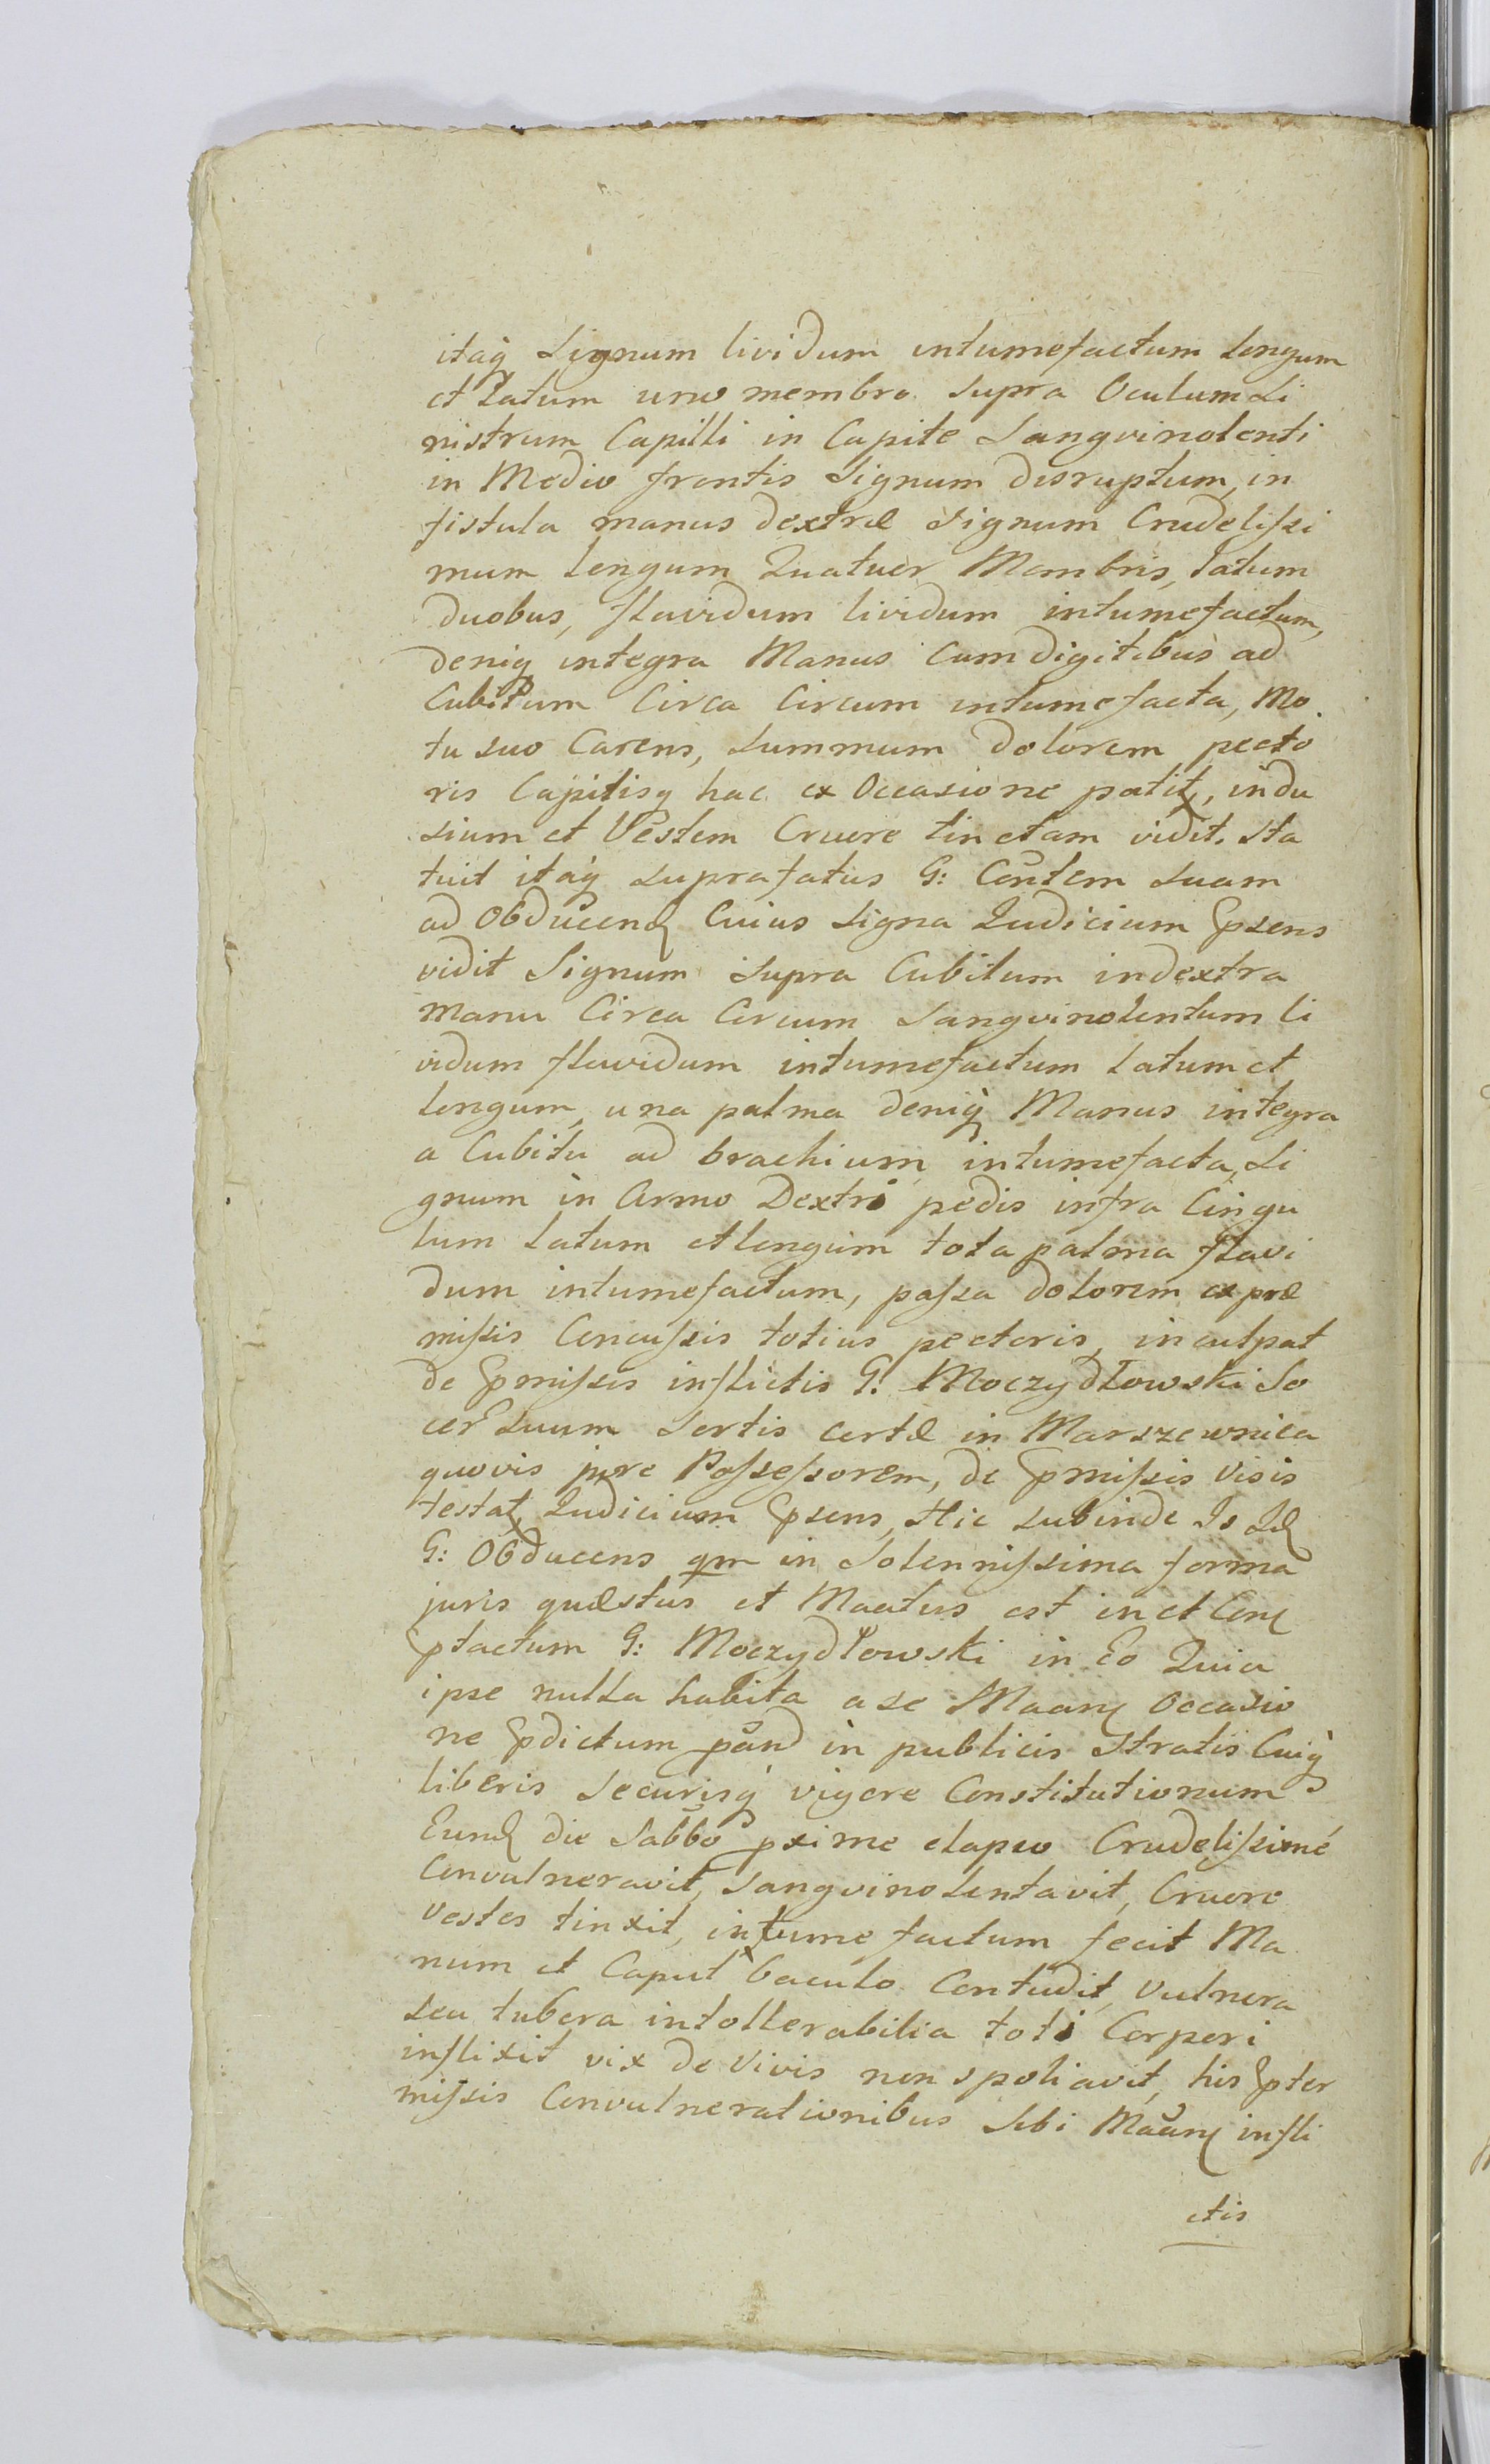 itaq Signum lividum intumefactum longum
et Latum uno membro supra Oculum Si
nistrum Capilli in Capite Sangvinolenti
in Medio frontis Signum disruptum, in
fistula manus dextræ Signum Crudelissi
mum longum Quatuor Membris, latum
duobus, flavidum lividum intumefactum,
deniq integra Manus Cum digitibus ad
Cubitum Circa Circum intumefacta, Mo
tu suo Carens, summum dolorem pecto
ris Capitisq hac ex Occasione patit, indu
sium et Vestem Cruore tinctam vidit. Sta
tuit itaq suprafatus G: Contem suam
ad Obducend Cuius Signa Judicium Psens
vidit Signum supra Cubitum in dextra
Manu Circa Circum Sangvinolentum li
vidum flavidum intumefactum latum et
longum, una palma deniq Manus integra
a Cubitu ad brachium intumefacta, Si
gnum in Armo Dextri pedis infra Cingu
lum latum et longum tota palma flavi
dum intumefactum, passa dolorem ex præ
missis Concussis totius pectoris, inculpat
de Pmissis inflictis G: Moczydłowski So
cer suum Sortis certæ in Marszewnica
quovis jure Possessorem, de Pmissis Visis
testat Judicium Psens, Hic subinde Is Id
G: Obducens qm in Solennissima forma
juris quæstus et Maatus est in et Con
Ptactum G: Moczydłowski in Eo Quia
ipse nulla habita a se Maan Occasio
ne Pdictum pand in publicis Stratis Cuiq
liberis Securisq vigore Constitutionum
Eund die Sabbo pxime elapso Crudelissimé
Convulneravit, Sangvinolentavit, Cruore
Vestes tinxit, intume factum fecit Ma
num et Caput baculo Contudit, Vulnera
seu tubera intollerabilia toti Corpori
inflixit vix de Vivis non spoliavit, his Pter
missis Convulnerationibus Sibi Maan infli
ctis